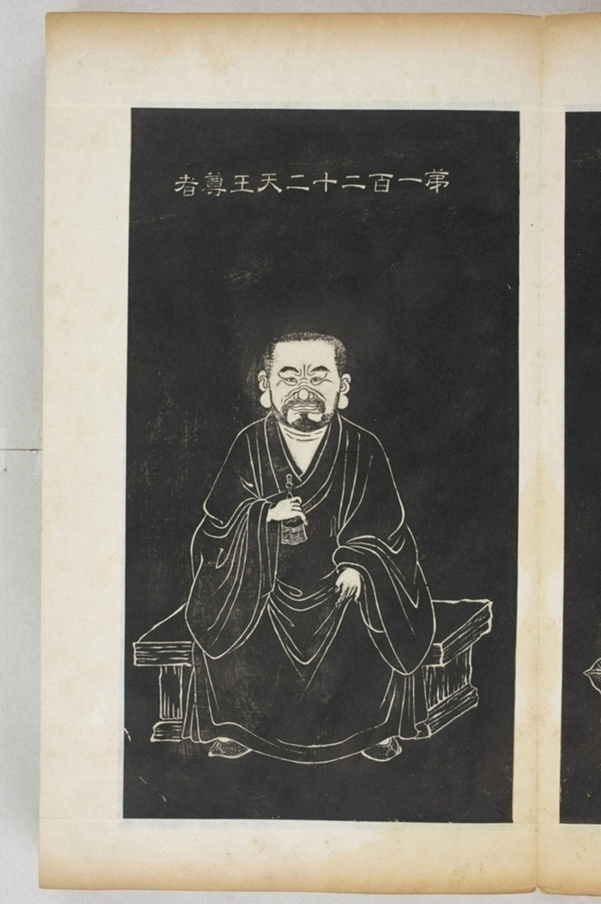 苐一百二十二天王尊者